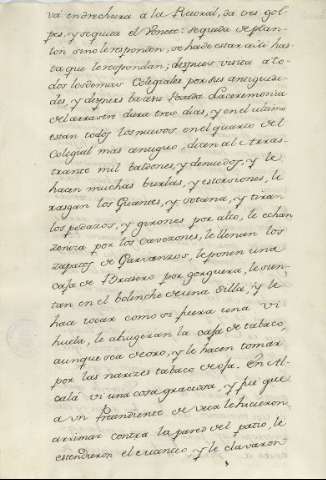 va endrechura a la Rectoral, da tres gol-
pes, y si quiera el Retor se queda de plan-
ton si no le responden, se ha de estar alli has-
ta que le respondan; despues visita a to-
dos los demas Colegiales por sus antiguede-
des, y despues ba a su Posada. La ceremonia
del arrastrar dura tres dias, y en el ultimo
estan todos los nuevos en el quarto del
Colegial mas antiguo, dicen al arras-
trante mil baldones, y denuedos, y le
hacen muchas burlas, y estorsiones, le
rasgan los Guantes, y sotana, y tiran
los pedazos, y girones por alto, le echan
zeniza por los cavezones, le llenan los
zapatos de Garvanzos, le ponen una
caja de Brasero por gorguera, le sien-
tan en el bolinche de una Silla, y le
hacen tocar como si fuera una vi
huela, le abugeran la caja de tabaco,
aunque sea de oro, y le hacen tomar
por las narizes tabaco de oja. En Al-
calá vi una cosa graciosa, y fue que
a un Pretendiente de veca le hicieron
arrimar contra la pared del patio, le
estendieron el manteo, y le clavaron